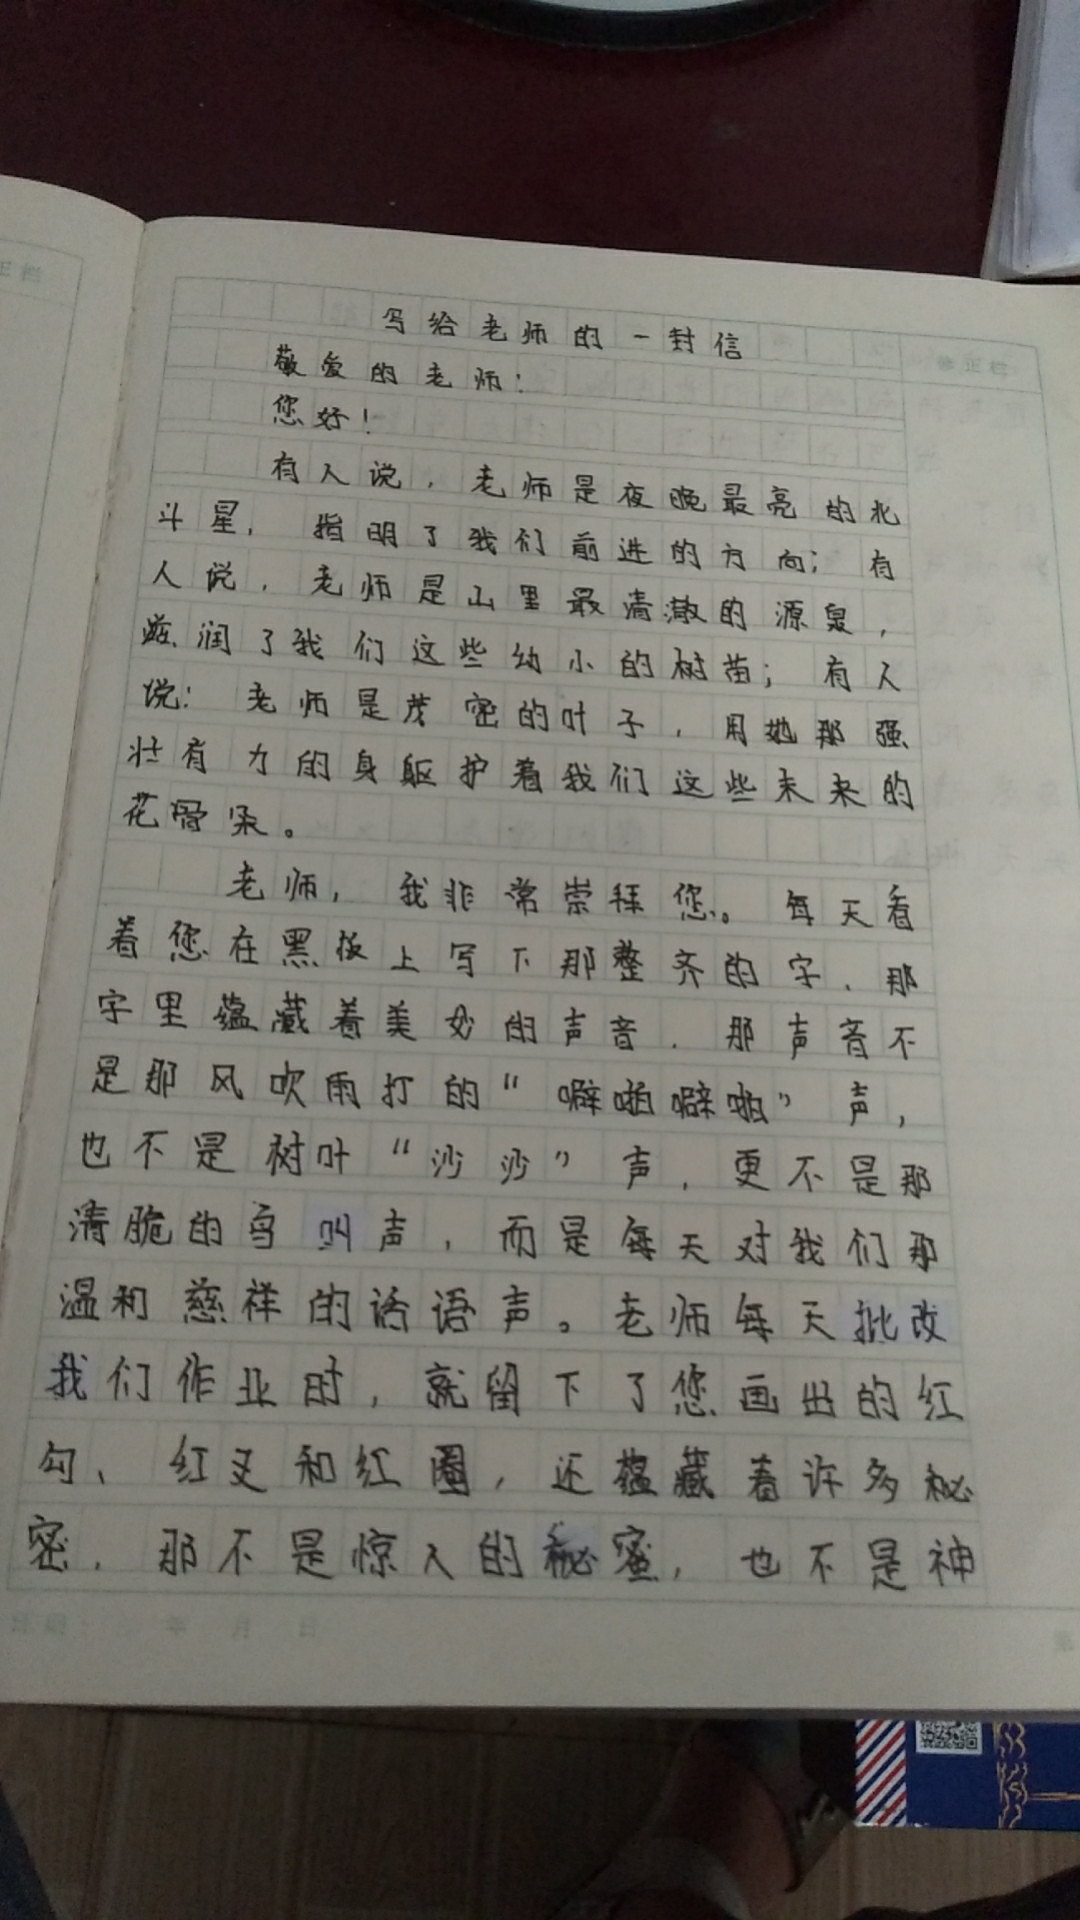 写给老师的一封信
敬爱的老师：
您好！
有人说，老师是夜晚最亮的北
斗星，指明了我们前进的方向；有
人说，老师是山里最清澈的源泉，
滋润了我们这些幼小的树苗；有人
说：老师是茂密的叶子，用她那强
壮有力的身躯护着我们这些未来的
花骨朵。
老师，我非常崇拜您。每天看
着您在黑板上写下那整齐的字，那
字里蕴藏着美妙的声音，那声音不
是那风吹雨打的“噼啪噼啪”声，
也不是树叶“沙沙”声，更不是那
清脆的鸟叫声，而是每天对我们那
温和慈祥的话语声。老师每天批改
我们作业时，就留下了您画出的红
勾、红叉和红圈，还蕴藏着许多秘
密，那不是惊人的秘密，也不是神
正栏
修正栏
日期：年月日
第